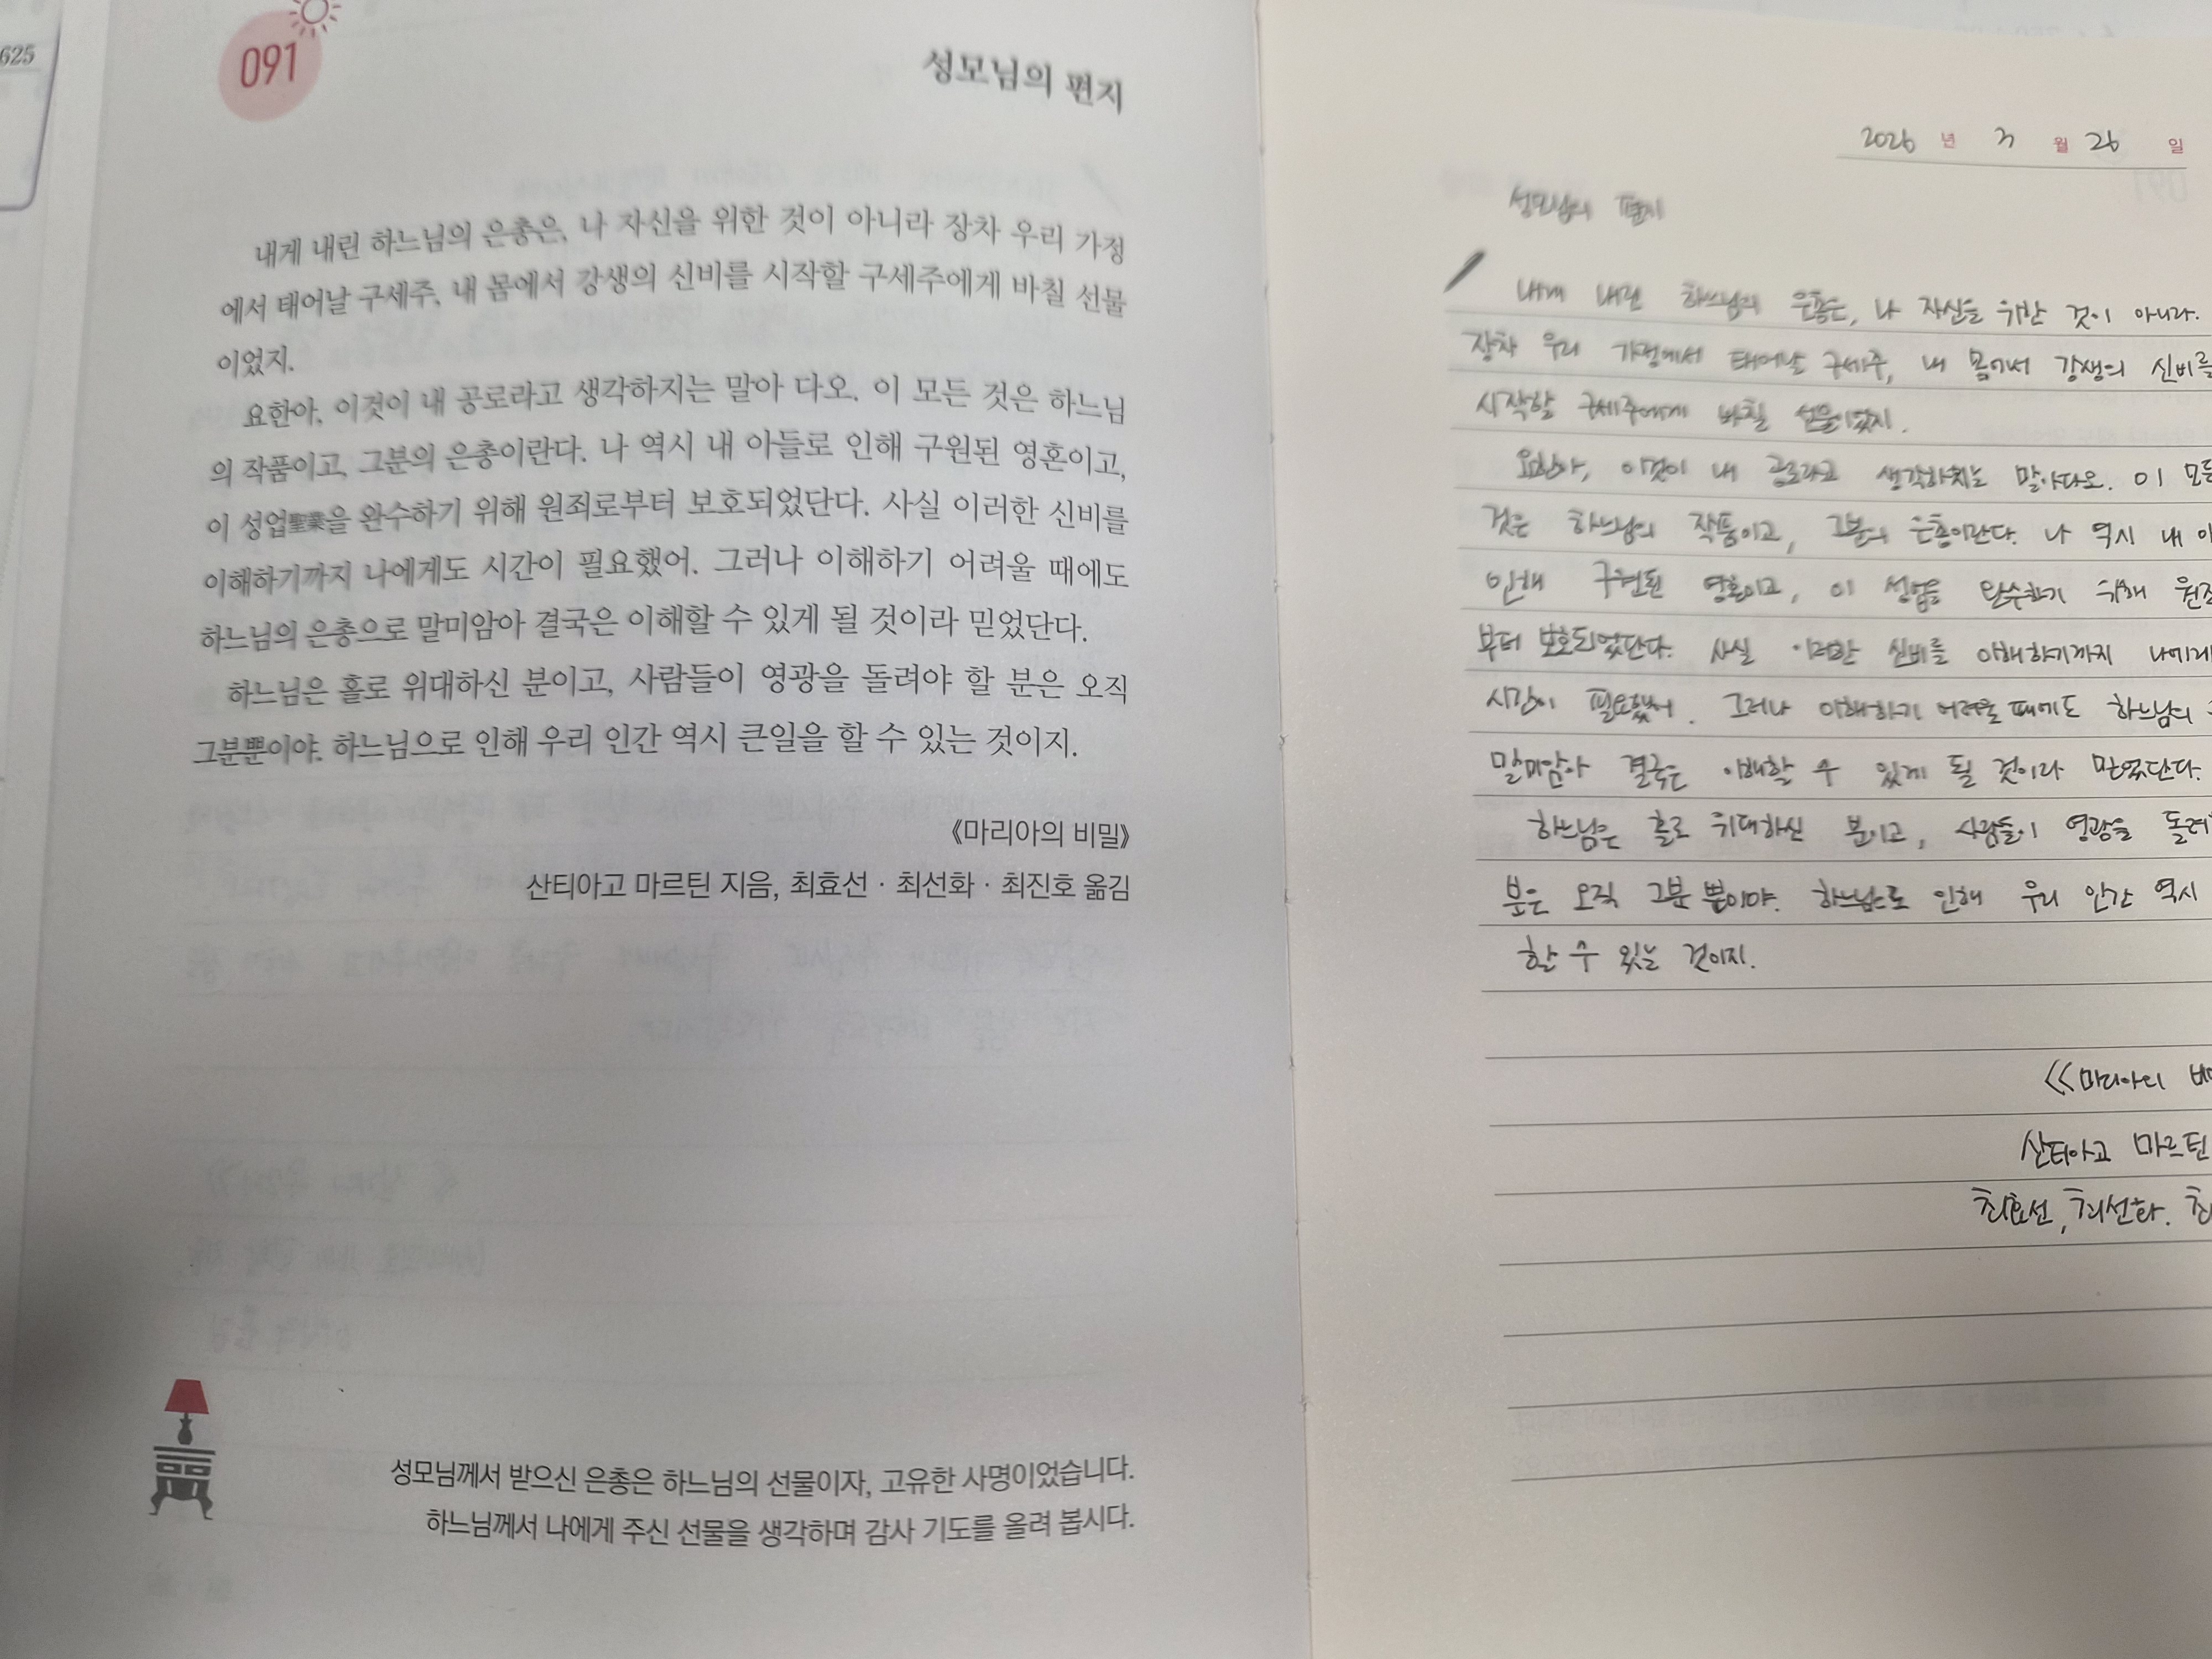 625
091
성모님의 편지
내게 내린 하느님의 은총은, 나 자신을 위한 것이 아니라 장차 우리 가정
에서 태어날 구세주, 내 몸에서 강생의 신비를 시작할 구세주에게 바칠 선물
이었지.
요한아, 이것이 내 공로라고 생각하지는 말아 다오. 이 모든 것은 하느님
의 작품이고, 그분의 은총이란다. 나 역시 내 아들로 인해 구원된 영혼이고,
이 성업聖業을 완수하기 위해 원죄로부터 보호되었단다. 사실 이러한 신비를
이해하기까지 나에게도 시간이 필요했어. 그러나 이해하기 어려울 때에도
하느님의 은총으로 말미암아 결국은 이해할 수 있게 될 것이라 믿었단다.
하느님은 홀로 위대하신 분이고, 사람들이 영광을 돌려야 할 분은 오직
그분뿐이야. 하느님으로 인해 우리 인간 역시 큰일을 할 수 있는 것이지.
《마리아의 비밀》
산티아고 마르틴 지음, 최효선 · 최선화 · 최진호 옮김
성모님께서 받으신 은총은 하느님의 선물이자, 고유한 사명이었습니다.
하느님께서 나에게 주신 선물을 생각하며 감사 기도를 올려 봅시다.
2026 년 3 월 26 일
성모님의 편지
내게 내린 하느님의 은총은, 나 자신을 위한 것이 아니라.
장차 우리 가정에서 태어날 구세주, 내 몸에서 강생의 신비를
시작할 구세주에게 바칠 선물이었지.
요한아, 이것이 내 공로라고 생각하지는 말아다오. 이 모든
것은 하느님의 작품이고, 그분의 은총이란다. 나 역시 내
인해 구원된 영혼이고, 이 성업을 완수하기 위해
부터 보호되었단다. 사실 이러한 신비를 이해하기까지
시간이 필요했어. 그러나 이해하기 어려울 때에도 하느님의
말미암아 결국은 이해할 수 있게 될 것이라 믿었단다.
하느님은 홀로 위대하신 분이고, 사람들이 영광을
분은 오직 그분 뿐이야. 하느님으로 인해 우리 인간 역시
할 수 있는 것이지.
<<마리아의
산티아고 마르틴
최효선, 최선화.